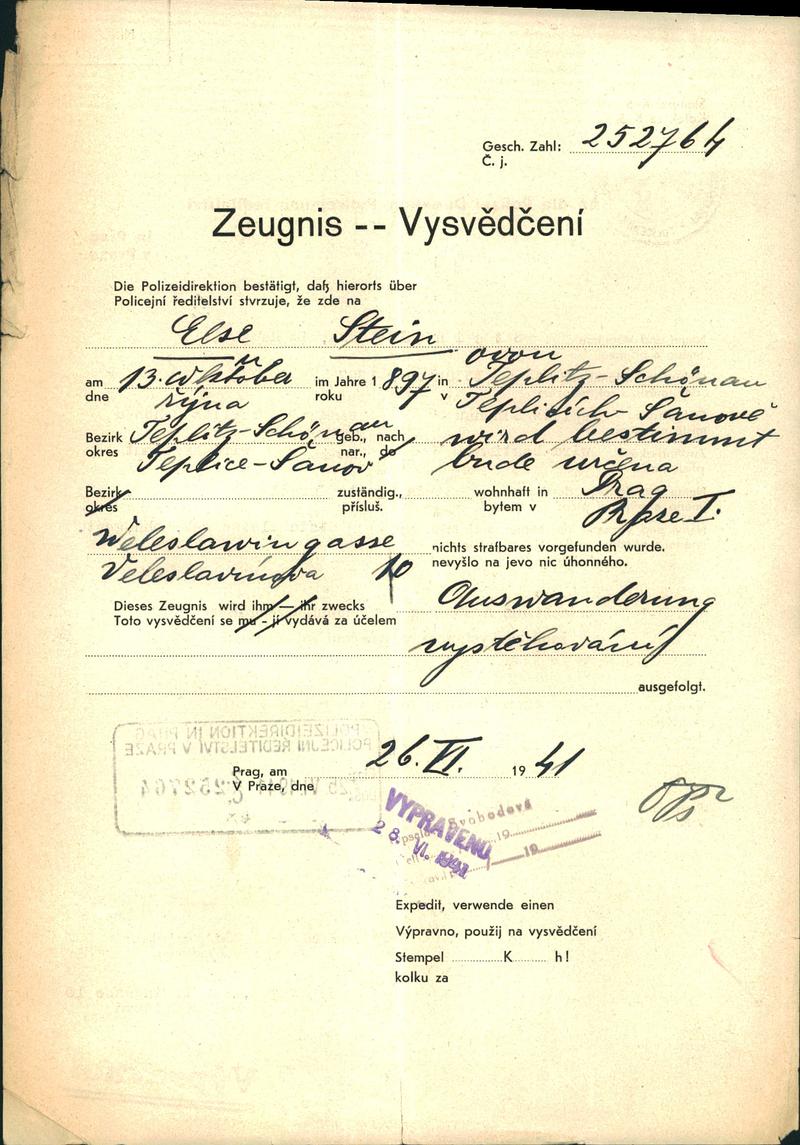 Gesch. Zahl: 252764
Č. j.
Zeugnis -- Vysvědčení
Die Polizeidirektion bestätigt, daß hierorts über
Policejní ředitelství stvrzuje, že zde na
Else Stein
ovou
am 13. Oktober im Jahre 1897 in Teplitz-Schönau
dne října roku v Teplicích-Šanově
Bezirk Teplitz-Schönau geb., nach wird bestimmt
okres Teplice-Šanov nar., do bude určena
Bezirk zuständig., wohnhaft in Prag
okres přísluš. bytem v Praze I.
Weleslawingasse nichts strafbares vorgefunden wurde.
Veleslavínova 10 nevyšlo na jevo nic úhonného.
Dieses Zeugnis wird ihm — ihr zwecks Auswanderung
Toto vysvědčení se mu - jí vydává za účelem
vystěhování
ausgefolgt.
POLIZEIDIREKTION IN PRAG
POLICEJNÍ ŘEDITELSTVÍ V PRAZE
252764
Prag, am 26. VI. 1941
V Praze, dne
VYPRAVENO
28. VI. 1941
Svobodová
19
19
Expedit, verwende einen
Výpravno, použij na vysvědčení
Stempel K h!
kolku za